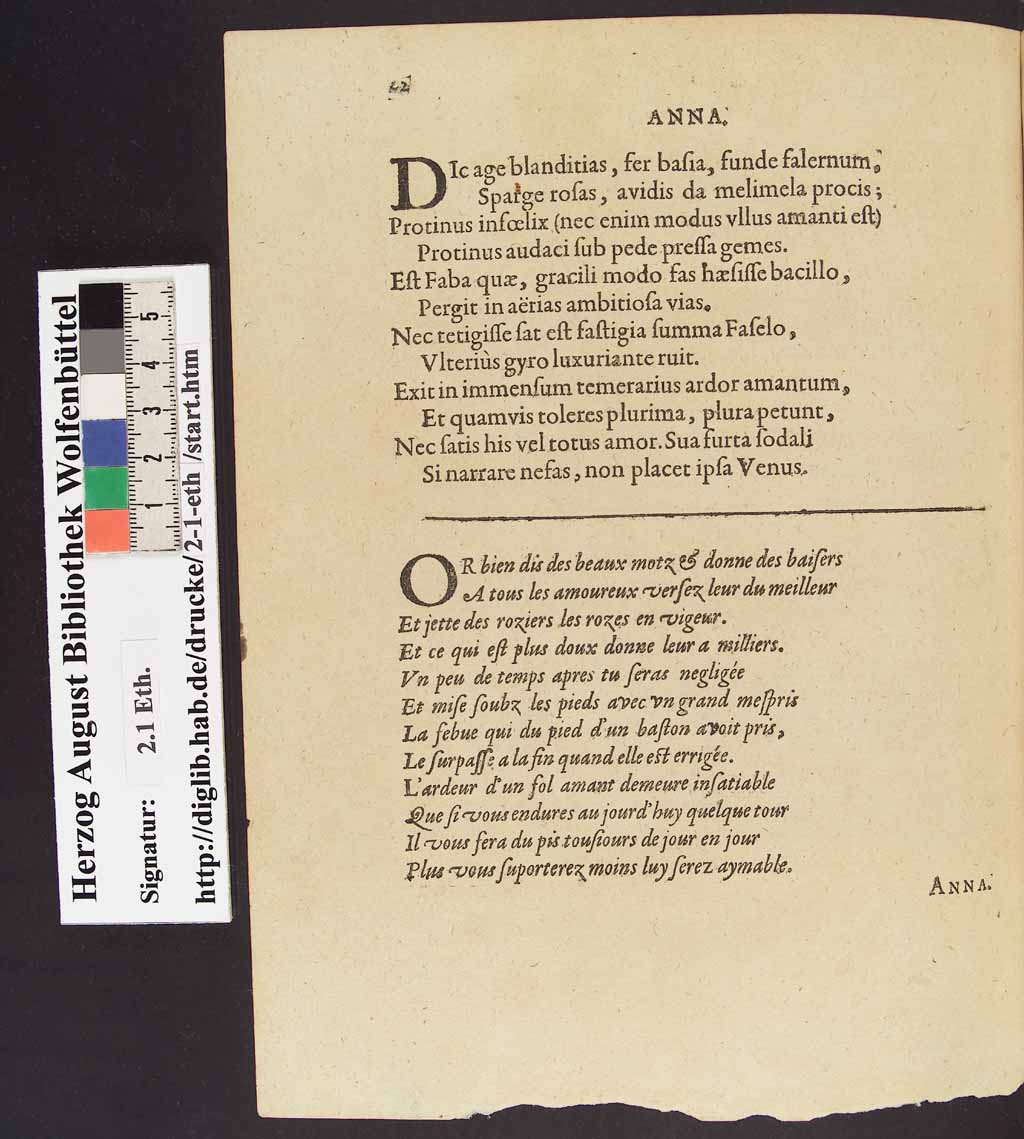 42
ANNA.
DIc age blanditias, fer baſia, funde falernum,
Sparge roſas, avidis da melimela procis;
Protinus infœlix (nec enim modus vllus amanti eſt)
Protinus audaci ſub pede preſſa gemes.
Eſt Faba quæ, gracili modo fas hæſiſſe bacillo,
Pergit in aërias ambitioſa vias.
Nec tetigiſſe ſat eſt faſtigia ſumma Faſelo,
Vlteriùs gyro luxuriante ruit.
Exit in immenſum temerarius ardor amantum,
Et quamvis toleres plurima, plura petunt,
Nec ſatis his vel totus amor. Sua furta ſodali
Si narrare nefas, non placet ipſa Venus.
OR bien dis des beaux motz & donne des baiſers
A tous les amoureux verſez leur du meilleur
Et jette des roziers les rozes en vigeur.
Et ce qui eſt plus doux donne leur a milliers.
Vn peu de temps apres tu ſeras negligée
Et miſe ſoubz les pieds avec vn grand meſpris
La febue qui du pied d'un baſton avoit pris,
Le ſurpaſſe a la fin quand elle eſt errigée.
L'ardeur d'un fol amant demeure inſatiable
Que ſi vous endures au jourd'huy quelque tour
Il vous fera du pis touſiours de jour en jour
Plus vous ſuporterez moins luy ſerez aymable.
ANNA.
Herzog August Bibliothek Wolfenbüttel
Signatur: 2.1 Eth.
http://diglib.hab.de/drucke/2-1-eth/start.htm
1 2 3 4 5